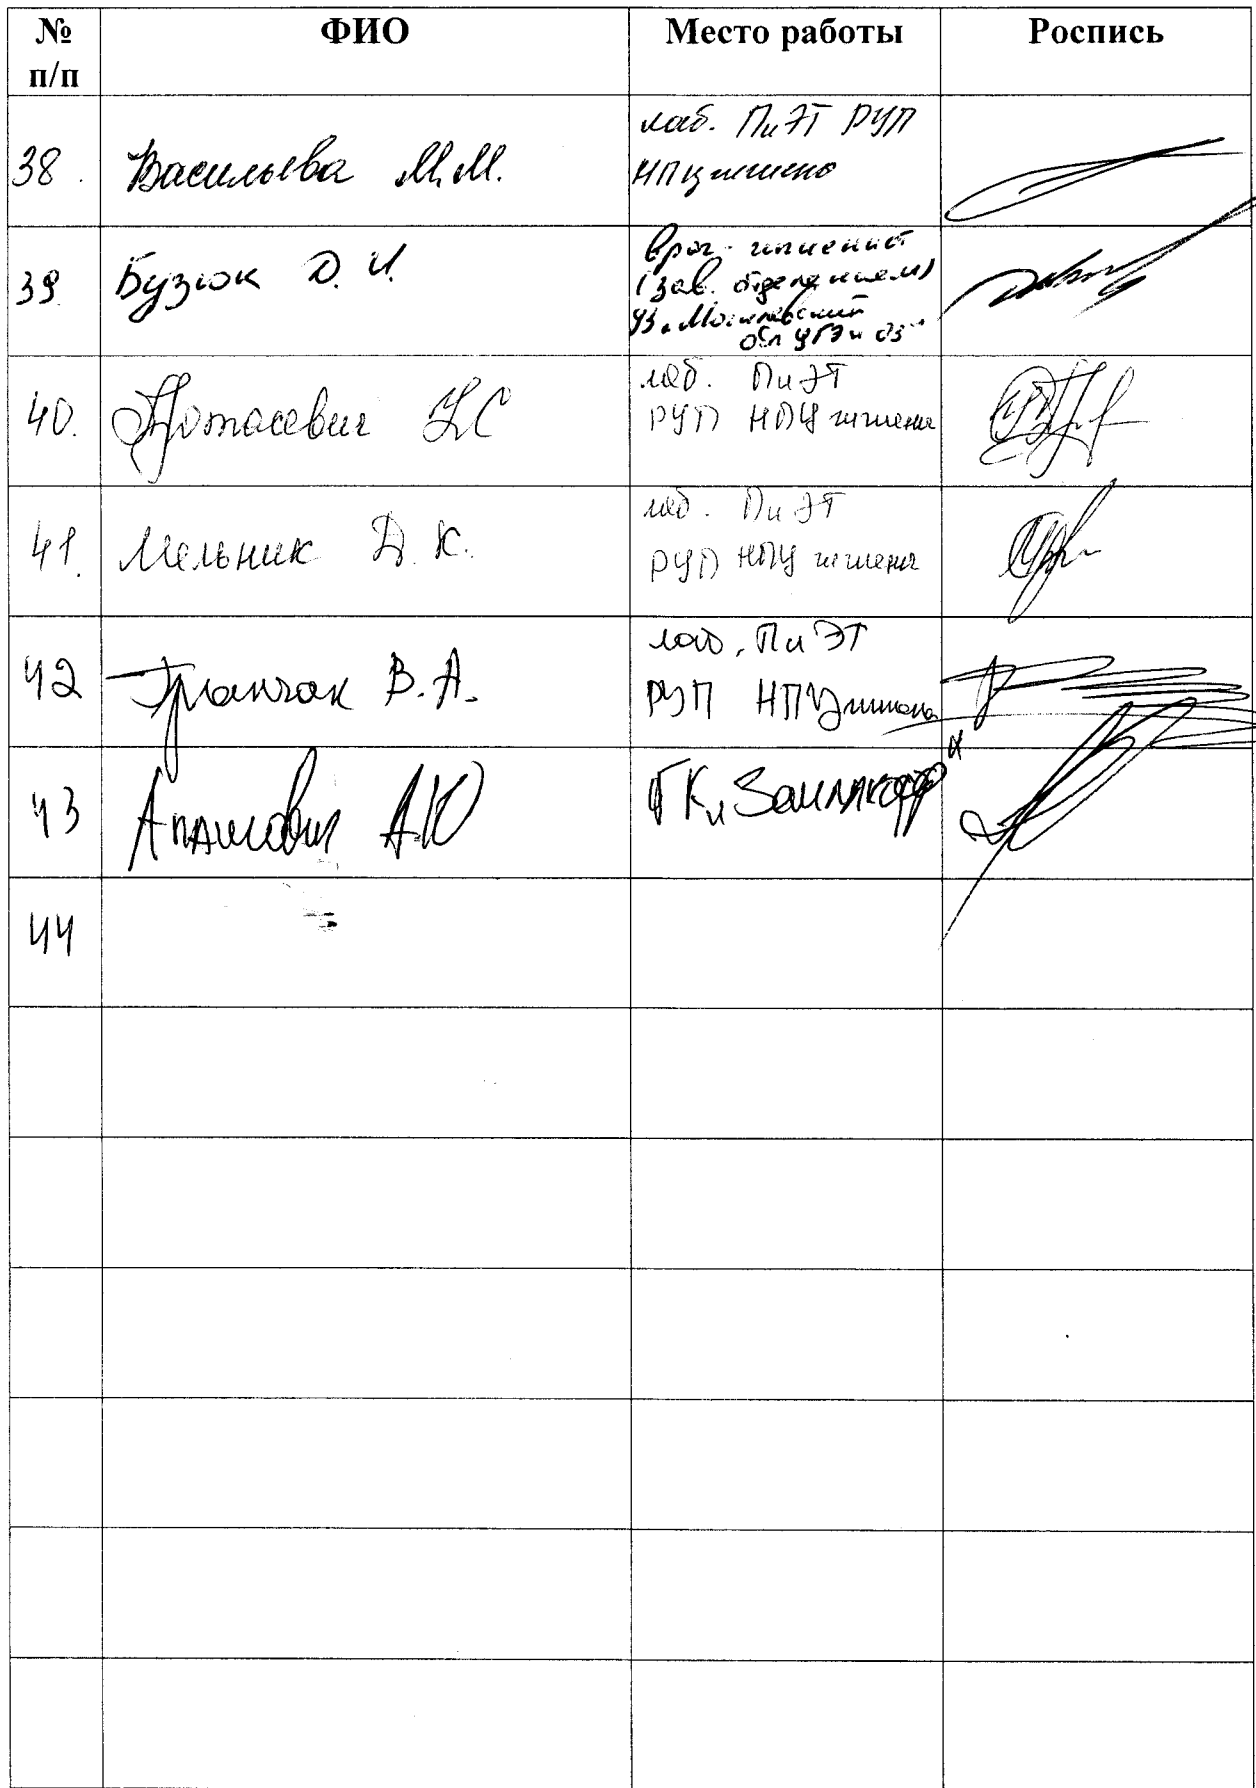 № п/п ФИО Место работы Роспись
38. Васильева М.М. лаб. ПиЭТ РУП
НПЦ гигиены
39. Бузюк Д. И. Врач-гигиенист
(зав. отделением)
УЗ "Могилевский
обл ЦГЭ и ОЗ"
40. Протасевич К С лаб. ПиЭТ
РУП НПЦ гигиены
41. Мельник Д. К. лаб. ПиЭТ
РУП НПЦ гигиены
42 В. А. лаб. ПиЭТ
РУП НПЦ гигиены
43 А Ю ГК
44